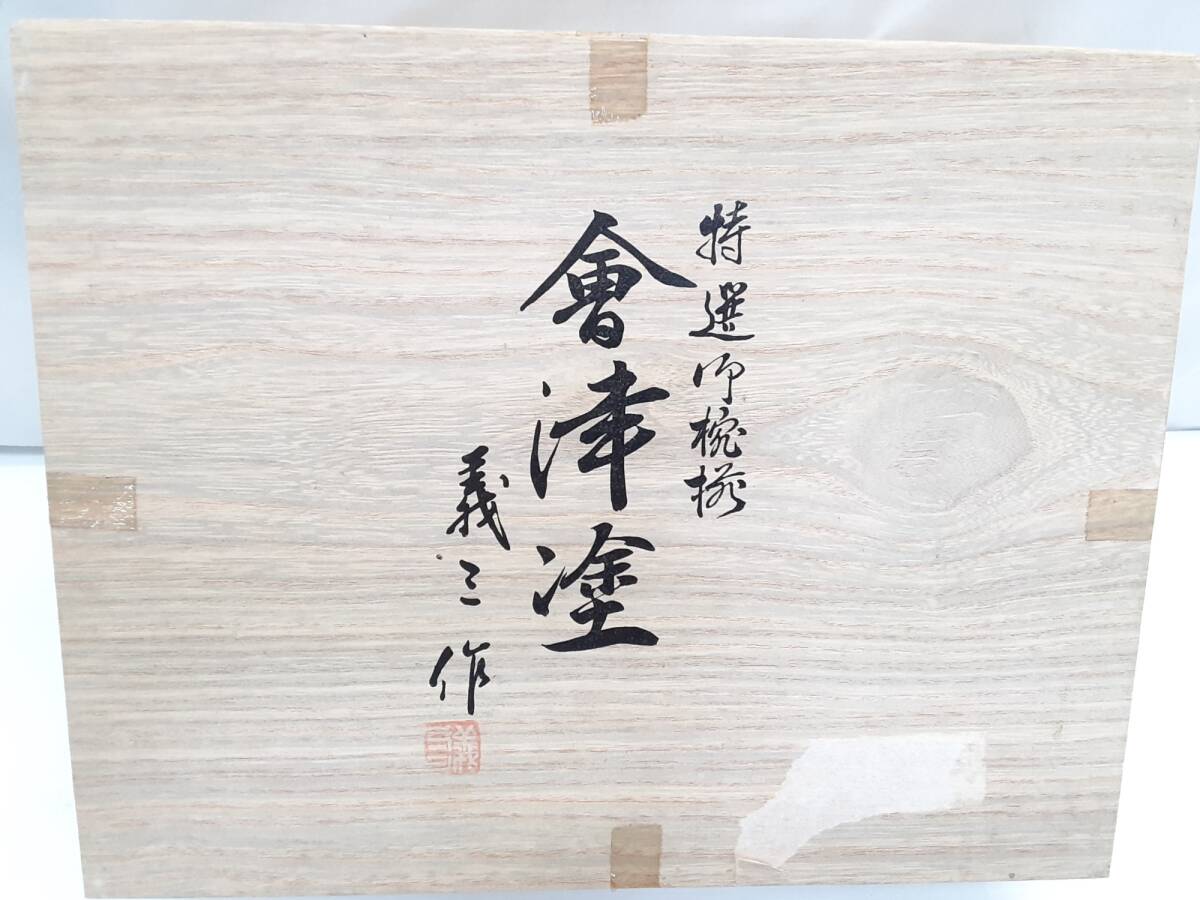 特選御椀揃
會津塗
義三作
義三